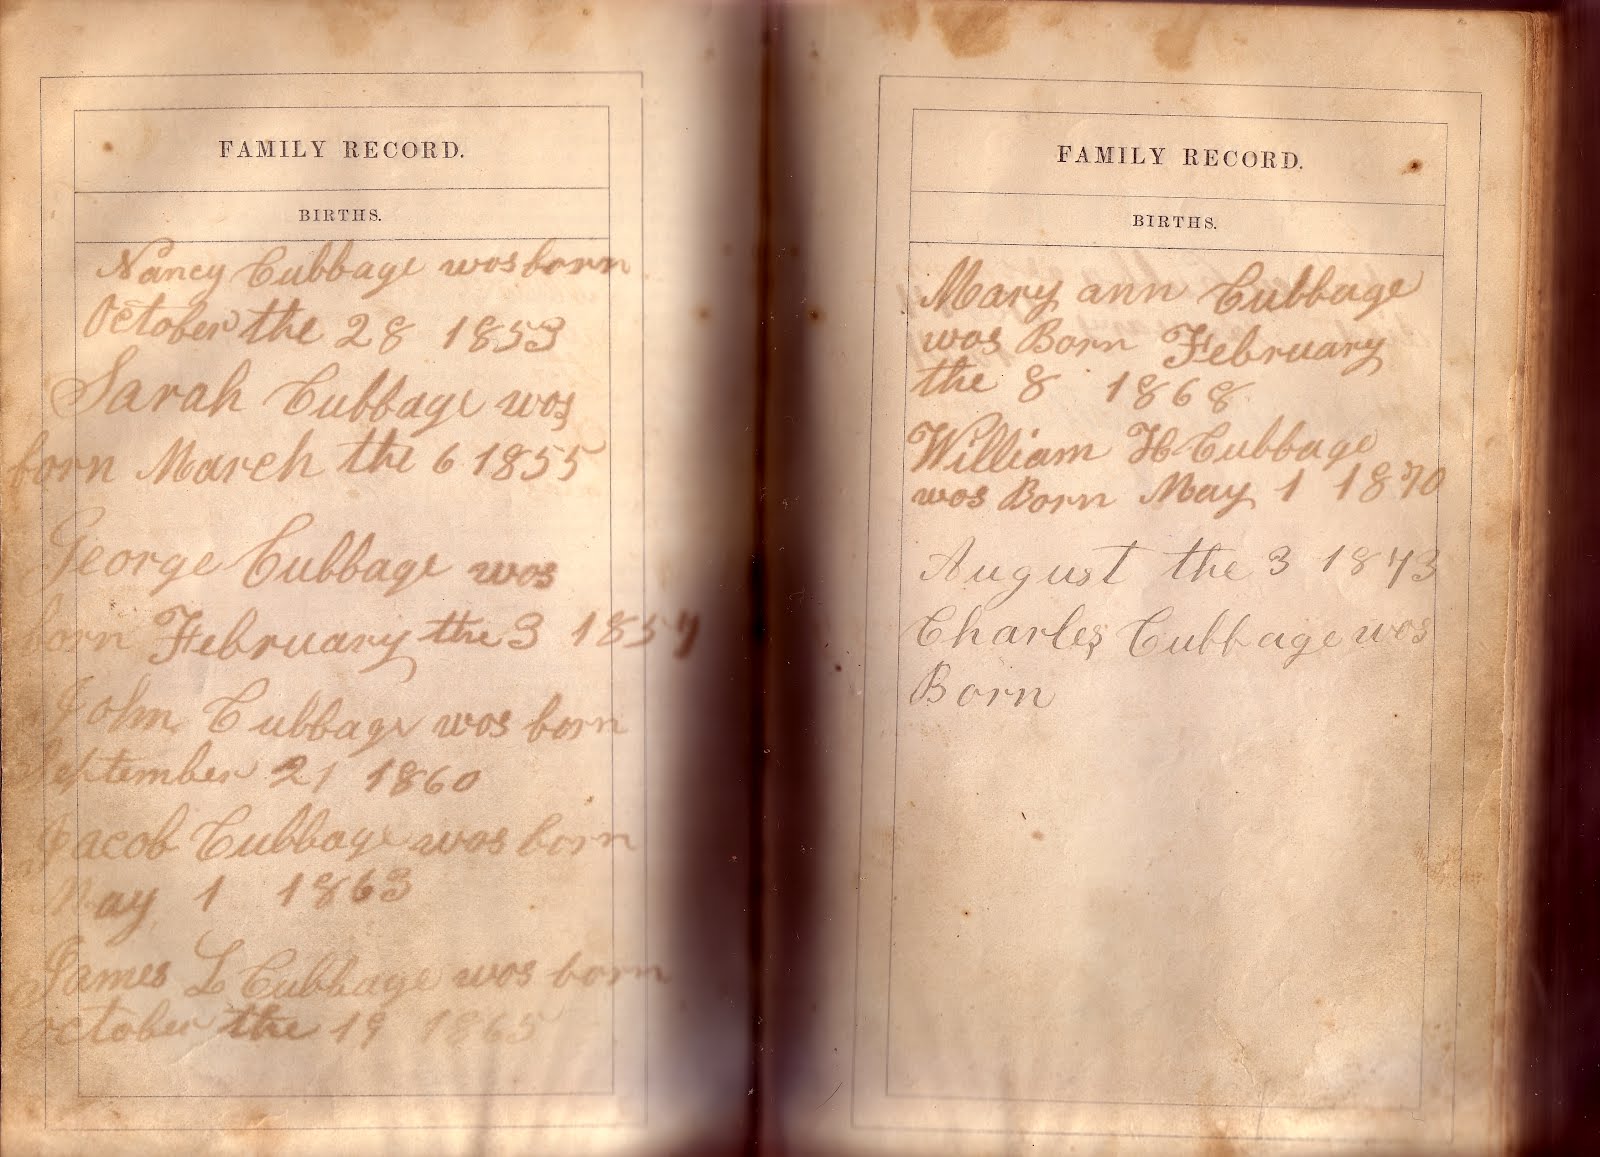 FAMILY RECORD.
BIRTHS.
Nancy Cubbage was born
October the 28 1853
Sarah Cubbage was
born March the 6 1855
George Cubbage was
born February the 3 1857
John Cubbage was born
September 21 1860
Jacob Cubbage was born
May 1 1863
James L Cubbage was born
October the 19 1865
FAMILY RECORD.
BIRTHS.
Mary ann Cubbage
was Born February
the 8 1868
William H Cubbage
was Born May 1 1870
August the 3 1873
Charles Cubbage was
Born